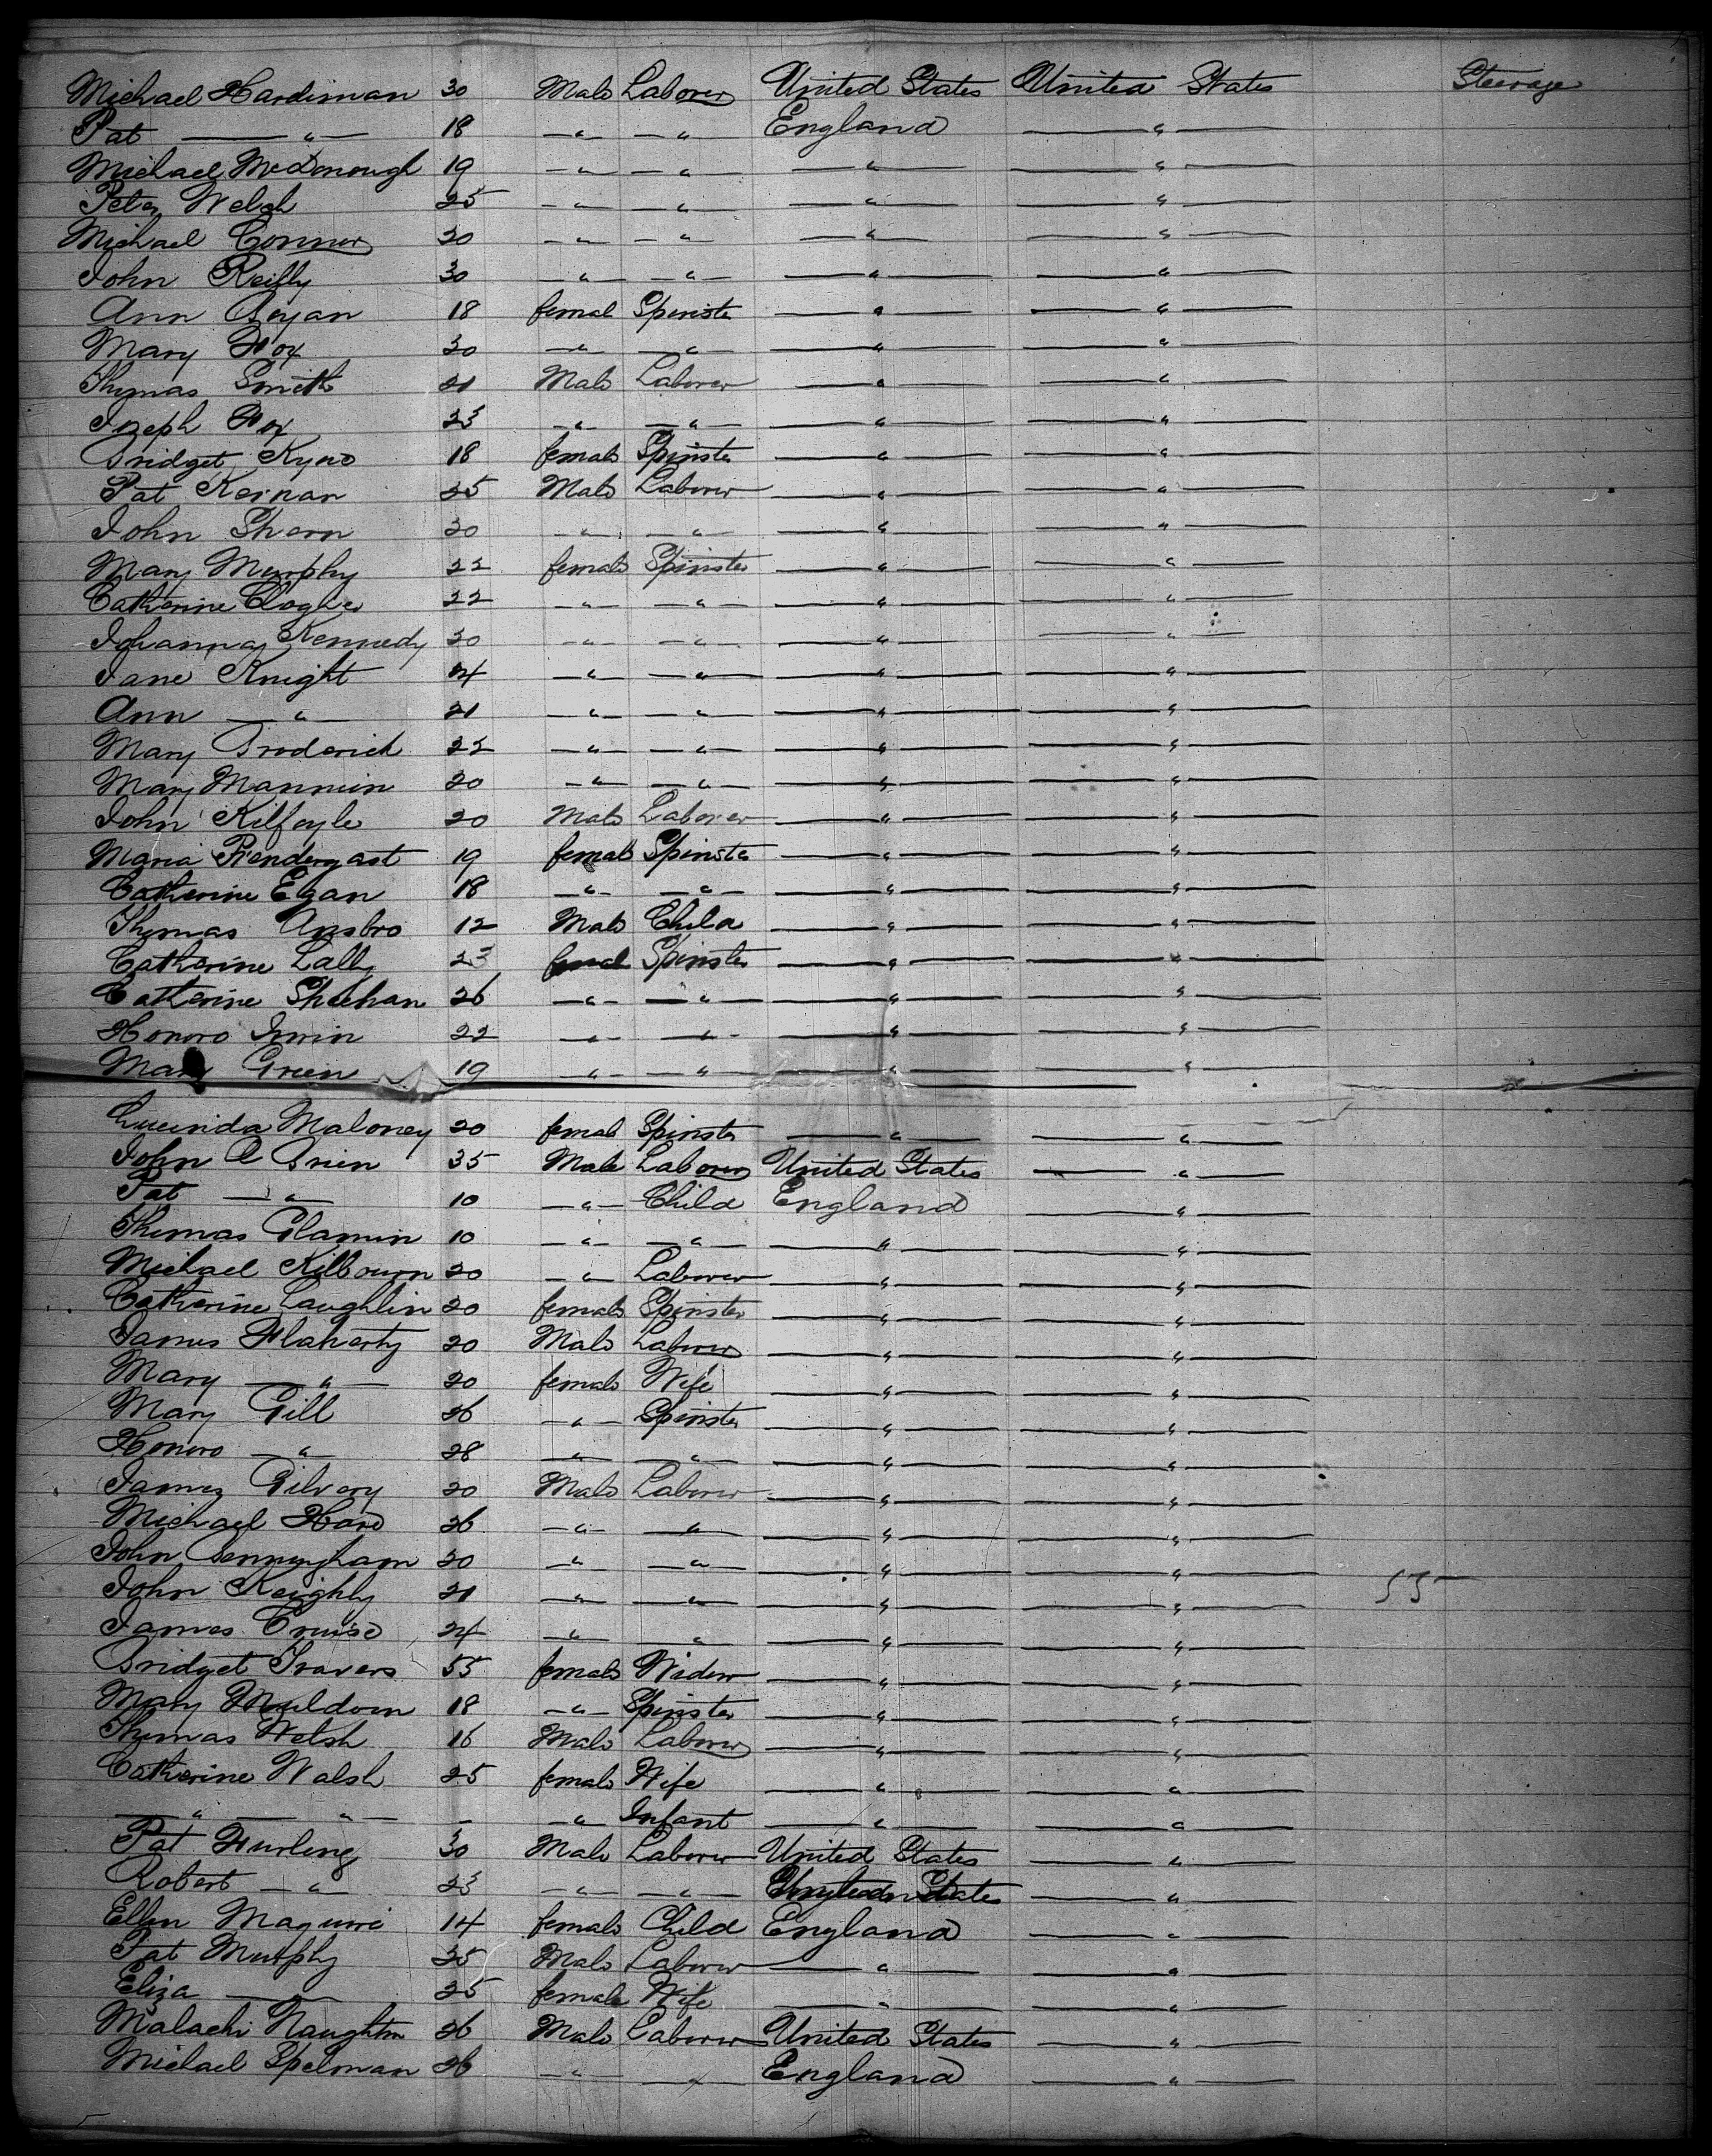 Michael Hardiman 30 Male Laborer United States United States Steerage
Pat — " — 18 — " — — " England — " —
Michael McDonough 19 — " — — " — — " — — " —
Peter Welsh 25 — " — — " — — " — — " —
Michael Connor 20 — " — — " — — " — — " —
John Reilly 30 — " — — " — — " — — " —
Ann Bryan 18 femal Spinster — " — — " —
Mary Fox 30 — " — — " — — " — — " —
Thomas Smith 21 Male Laborer — " — — " —
Joseph Fox 23 — " — — " — — " — — " —
Bridget Kyno 18 female Spinster — " — — " —
Pat Kernan 25 Male Laborer — " — — " —
John Shern 20 — " — — " — — " — — " —
Mary Murphy 22 female Spinster — " — — " —
Catherine Cloghe 22 — " — — " — — " — — " —
Johanna Kennedy 30 — " — — " — — " — — " —
Jane Knight 24 — " — — " — — " — — " —
Ann — " — 21 — " — — " — — " — — " —
Mary Broderick 22 — " — — " — — " — — " —
Mary Mannion 20 — " — — " — — " — — " —
John Kilfoyle 20 Male Laborer — " — — " —
Maria Prendergast 19 female Spinster — " — — " —
Catherine Egan 18 — " — — " — — " — — " —
Thomas Ansbro 12 Male Child — " — — " —
Catherine Lally 23 femal Spinster — " — — " —
Catherine Sheehan 26 — " — — " — — " — — " —
Honoro Irwin 22 — " — — " — — " — — " —
Mary Green 19 — " — — " — — " — — " —
Lucinda Maloney 20 femal Spinster — " — — " —
John O Brien 35 Male Laborer United States — " —
Pat — " — 10 — " — Child England — " —
Thomas Glamin 10 — " — — " — — " — — " —
Michael Kilbourn 20 — " — Laborer — " — — " —
Catherine Laughlin 20 female Spinster — " — — " —
James Flaherty 20 Male Laborer — " — — " —
Mary — " — 20 female Wife — " — — " —
Mary Gill 26 — " — Spinster — " — — " —
Honoro — " — 28 — " — — " — — " — — " —
James Gilvery 20 Male Laborer — " — — " —
Michael Hare 26 — " — — " — — " — — " —
John Cennyngham 20 — " — — " — — " — — " —
John Keighly 21 — " — — " — — " — — " — 55
James Cruise 24 — " — — " — — " — — " —
Bridget Travers 55 female Widow — " — — " —
Mary Muldoon 18 — " — Spinster — " — — " —
Thomas Welsh 16 Male Laborer — " — — " —
Catherine Walsh 25 female Wife — " — — " —
— " — — " — — — " — Infant — " — — " —
Pat Furlong 30 Male Laborer United States — " —
Robert — " — 23 — " — — " — United States — " —
Ellen Maguire 14 female Child England — " —
Pat Murphy 35 Male Laborer — " — — " —
Eliza — — 25 female Wife — " — — " —
Malachi Naughton 26 Male Laborer United States — " —
Michael Spelman 26 — " — — " — England — " —